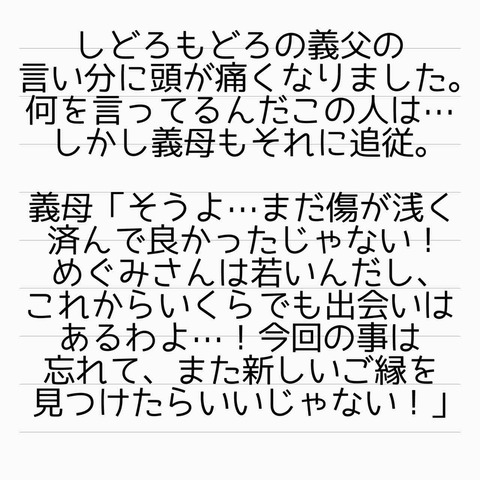 しどろもどろの義父の
言い分に頭が痛くなりました。
何を言ってるんだこの人は…
しかし義母もそれに追従。
義母「そうよ…まだ傷が浅く
済んで良かったじゃない！
めぐみさんは若いんだし、
これからいくらでも出会いは
あるわよ…！今回の事は
忘れて、また新しいご縁を
見つけたらいいじゃない！」